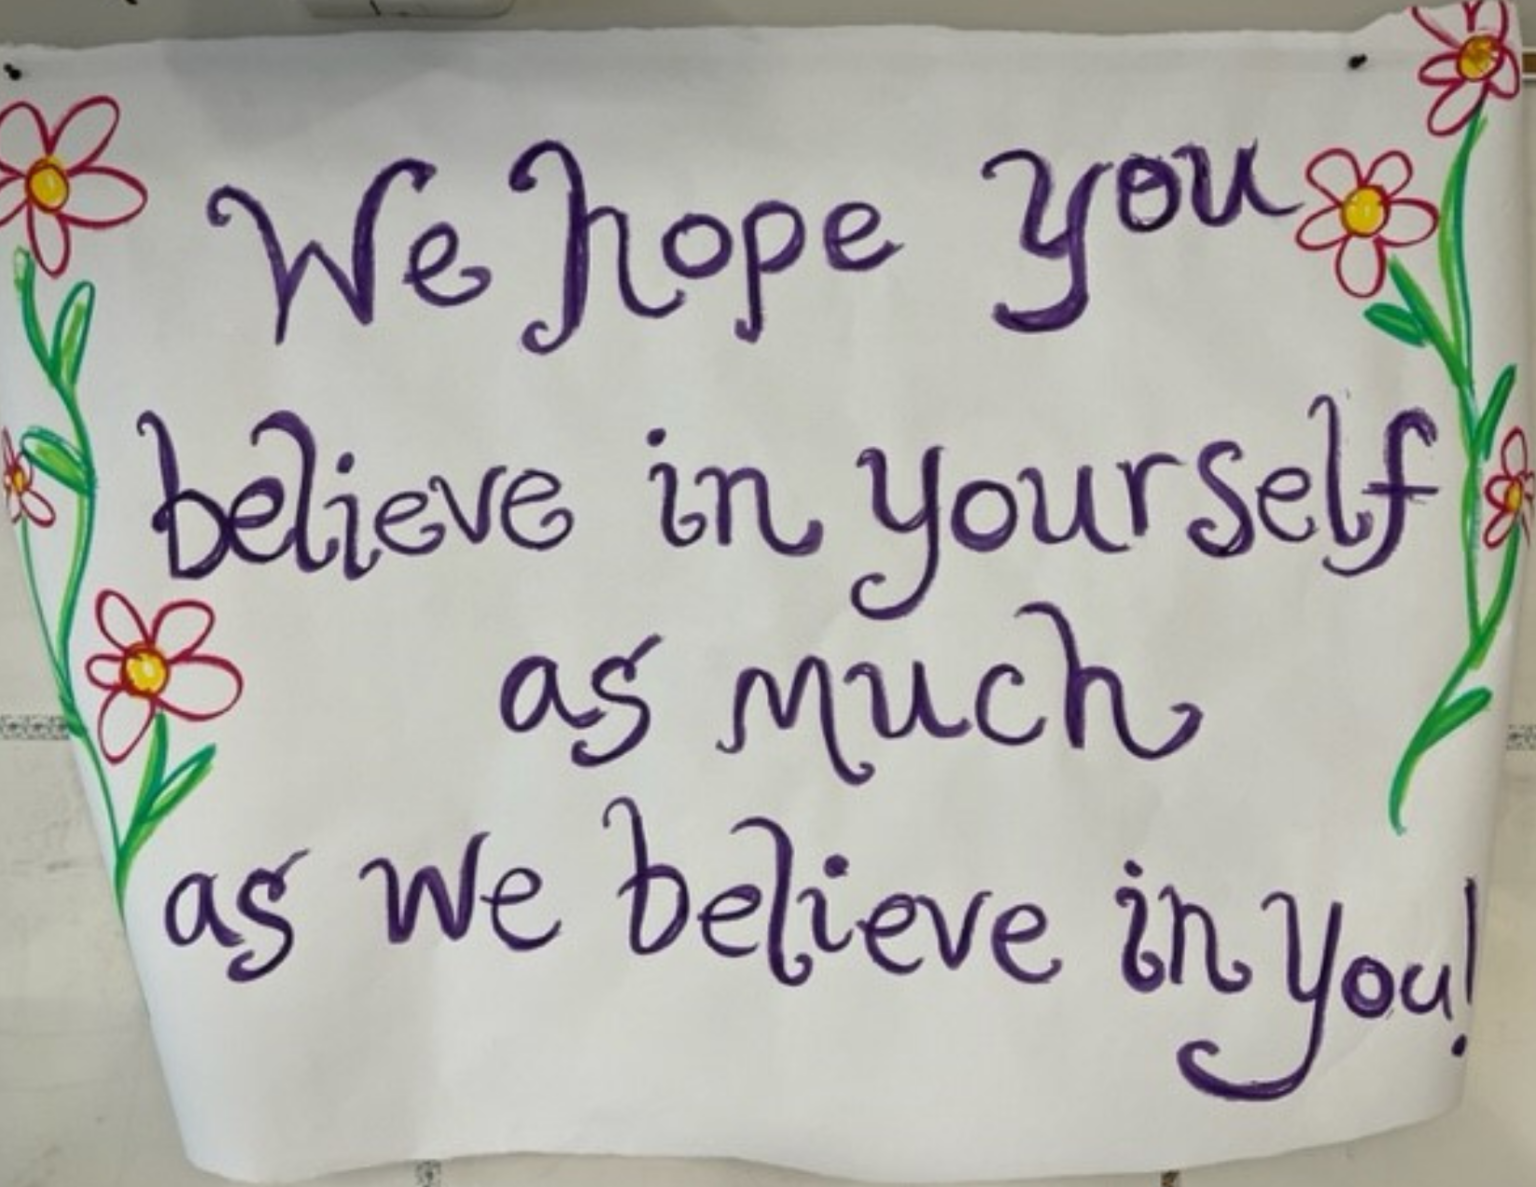 We hope you
believe in yourself
as much
as we believe in you!